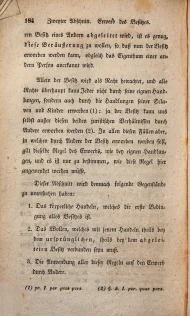 184 Zweyter Abschnitt. Erwerb des Besitzes.
ren Besitz eines Andern abgeleitet wird, ist es genug,
diese Veräusserung zu wollen, so daß nun der Besitz
erworben werden kann, obgleich das Eigenthum einer an-
dern Person anerkannt wird.
Allein der Besitz wird als Recht betrachtet, und alle
Rechte überhaupt kann Jeder nicht durch seine eigenen
Handlungen, sondern auch durch die Handlungen seiner Scla-
ven und Kinder erwerben (1): ja der Besitz kann selbst
ausser diesen beiden juristischen Verhältnissen durch
Andere erworben werden (2). In allen diesen Fällen aber,
in welchen durch Andere der Besitz erworben werden soll,
gilt dieselbe Regel des Erwerbs, wie bey eigenen Handlun-
gen, und es ist nur zu bestimmen, wie diese Regel hier
angewendet werden müsse.
Dieser Abschnitt wird demnach folgende Gegenstände
zu umfassen haben:
1. Das körperliche Handeln, welches die erste Bedin-
gung alles Besitzes ist.
2. Das Wollen, welches mit jenem Handeln theils bey
dem ursprünglichen, theils bey dem abgelei-
teten Besitz verbunden seyn muß.
3. Die Anwendung aller dieser Regeln auf den Erwerb
durch Andere.
(1) pr. I. per quas pers. (2) §. 5. I. per quas pers.